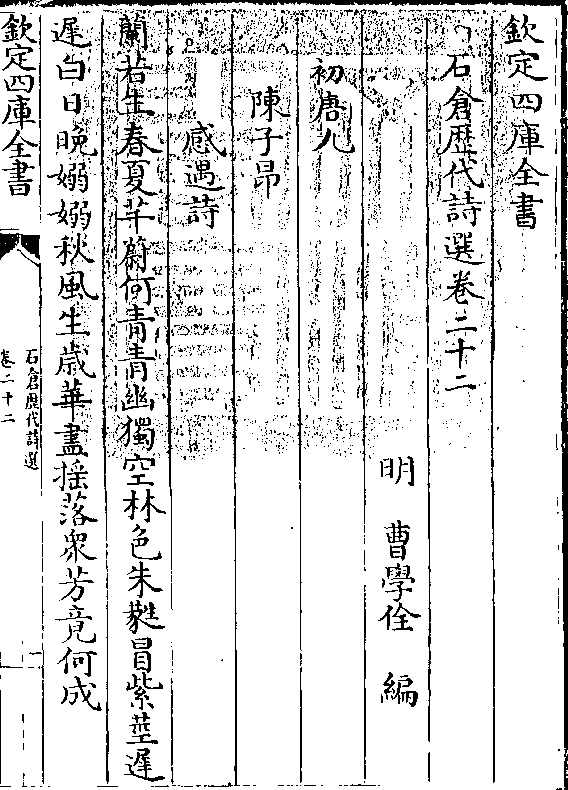 欽定四庫全書
石倉歴代詩選卷二十二
明 曹學佺 編
初唐九
陳子昂
感遇詩
蘭若生春夏芊蔚何青青幽獨空林色朱蕤冒紫莖遲
遲白日晚嫋嫋秋風生歲華盡揺落衆芳竟何成
欽定四庫全書
石倉歴代詩選
卷二十二